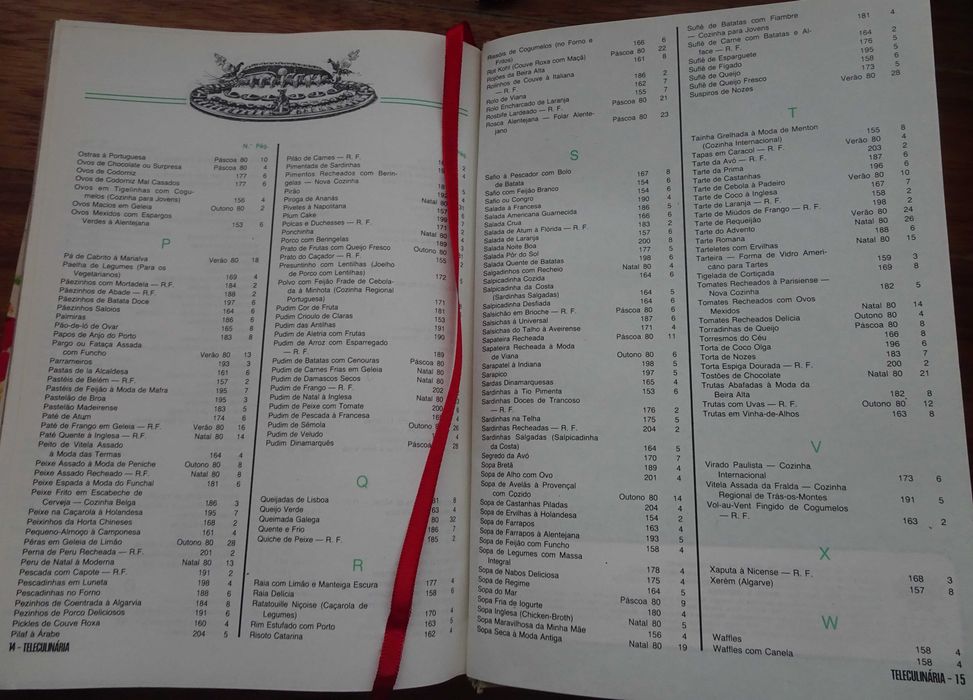 N.º Pág.
Ostras à Portuguesa Páscoa 80 10
Ovos de Chocolate ou Surpresa Páscoa 80 4
Ovos de Codorniz 177 6
Ovos de Codorniz Mal Casados 177 6
Ovos em Tigelinhas com Cogu-
melos (Cozinha para Jovens) 156 4
Ovos Macios em Geleia Outono 80 2
Ovos Mexidos com Espargos
Verdes à Alentejana 153 6
P
Pá de Cabrito à Marialva Verão 80 18
Paelha de Legumes (Para os
Vegetarianos) 169 4
Pãezinhos com Mortadela — R. F. 184 2
Pãezinhos de Abade — R. F. 188 2
Pãezinhos de Batata Doce 197 6
Pãezinhos Saloios 164 6
Palmiras 186 6
Pão-de-ló de Ovar 165 8
Papos de Anjo do Porto 183 8
Pargo ou Fataça Assada
com Funcho Verão 80 13
Parrameiros 193 3
Pastas de la Alcaldesa 161 6
Pastéis de Belém — R. F. 157 2
Pastéis de Feijão à Moda de Mafra 195 7
Pastelão de Broa 195 3
Pastelão Madeirense 183 5
Paté de Atum 174 6
Paté de Frango em Geleia — R.F. Verão 80 16
Paté Quente à Inglesa — R. F. Natal 80 14
Peito de Vitela Assado
à Moda das Termas 164 4
Peixe Assado à Moda de Peniche Outono 80 8
Peixe Assado Recheado — R.F. Natal 80 8
Peixe Espada à Moda do Funchal 181 6
Peixe Frito em Escabeche de
Cerveja — Cozinha Belga 186 3
Peixe na Caçarola à Holandesa 195 7
Peixinhos da Horta Chineses 168 2
Pequeno-Almoço à Camponesa 171 4
Pêras em Geleia de Limão Outono 80 28
Perna de Peru Recheada — R.F. 201 2
Peru de Natal à Moderna Natal 80 13
Pescada com Capote — R.F. 191 2
Pescadinhas em Luneta 198 4
Pescadinhas no Forno 188 6
Pezinhos de Coentrada à Algarvia 184 8
Pezinhos de Porco Deliciosos 191 6
Pickles de Couve Roxa 160 4
Pilaf à Árabe 204 5
14 - TELECULINÁRIA
Pág.
Pilão de Carnes — R. F.
Pimentada de Sardinhas
Pimentos Recheados com Berin-
gelas — Nova Cozinha
Pirão
Piroga de Ananás
Piveles à Napolitana
Plum Cake
Polcas e Duchesses — R. F.
Ponchinha
Porco com Beringelas
Prato de Frutas com Queijo Fresco
Prato do Caçador — R. F.
Presuntinho com Lentilhas (Joelho
de Porco com Lentilhas) 172
Polvo com Feijão Frade de Cebola-
da à Minhota (Cozinha Regional
Portuguesa) 171
Pudim Cor de Fruta 181
Pudim Crioulo de Claras 153
Pudim das Antilhas 191
Pudim de Aletria com Frutas 190
Pudim de Arroz com Esparregado
— R. F. 189
Pudim de Batatas com Cenouras Páscoa 80
Pudim de Carnes Frias em Geleia Natal 80
Pudim de Damascos Secos Natal 80
Pudim de Frango — R. F. 202
Pudim de Natal à Inglesa Natal 80
Pudim de Peixe com Tomate 200
Pudim de Pescada à Francesa 166
Pudim de Sêmola
Pudim de Veludo
Pudim Dinamarquês 28
Q
Queijadas de Lisboa 8
Queijo Verde 4
Queimada Galega 80 32
Quente e Frio 186 7
Quiche de Peixe — R. F. 185 2
R
Raia com Limão e Manteiga Escura 177 4
Raia Delícia 158 6
Ratatouille Niçoise (Caçarola de
Legumes) 170 4
Rim Estufado com Porto 163 5
Risoto Catarina 162 4
Rissóis de Cogumelos (no Forno e
Fritos) 166 6
Rot Kohl (Couve Roxa com Maçã) Páscoa 80 22
Rojões da Beira Alta 161 8
Rolinhos de Couve à Italiana
— R. F. 186 2
Rolo de Viana 162 7
Rolo Encharcado de Laranja 155 7
Rosbife Lardeado — R. F. Páscoa 80 21
Rosca Alentejana — Folar Alente-
jano Páscoa 80 23
S
Safio à Pescador com Bolo
de Batata 167 8
Safio com Feijão Branco 154 6
Safio ou Congro 154 6
Salada à Francesa 190 4
Salada Americana Guarnecida 186 5
Salada Crua 166 6
Salada de Atum à Flórida — R. F. 183 2
Salada de Laranja 157 6
Salada Noite Boa 200 8
Salada Pôr do Sol 177 5
Salada Quente de Batatas 198 6
Salgadinhos com Recheio Natal 80 4
Salpicadinha Cozida 164 6
Salpicadinha da Costa
(Sardinhas Salgadas) 164 5
Salpicadinha Desfiada 164 6
Salsichão em Brioche — R. F. Páscoa 80 6
Salsichas à Universal 187 6
Salsichas do Talho à Aveirense 171 4
Sapateira Recheada Páscoa 80 11
Sapateira Recheada à Moda
de Viana Outono 80 6
Sarapatel à Indiana 198 5
Sarapico 197 5
Sardas Dinamarquesas 165 4
Sardinhas à Tio Pimenta 153 6
Sardinhas Doces de Trancoso
— R. F. 176 2
Sardinhas na Telha 175 5
Sardinhas Recheadas — R. F. 204 2
Sardinhas Salgadas (Salpicadinha
da Costa) 164 5
Segredo da Avó 170 7
Sopa Bretã 189 4
Sopa de Alho com Ovo 201 4
Sopa de Avelãs à Provençal
com Cozido Outono 80 14
Sopa de Castanhas Piladas 204 4
Sopa de Ervilhas à Holandesa 154 2
Sopa de Farrapos 163 4
Sopa de Farrapos à Alentejana 193 5
Sopa de Feijão com Funcho 158 4
Sopa de Legumes com Massa
Integral 178 4
Sopa de Nabos Deliciosa 175 4
Sopa de Regime 164 5
Sopa do Mar Páscoa 80 9
Sopa Fria de Iogurte 180 4
Sopa Inglesa (Chicken-Broth) Natal 80 5
Sopa Maravilhosa da Minha Mãe 156 4
Sopa Seca à Moda Antiga Natal 80 19
Suflê de Batatas com Fiambre
— Cozinha para Jovens 181 4
Suflê de Carne com Batatas e Al-
face — R. F. 164 2
Suflê de Esparguete 176 5
Suflê de Fígado 195 5
Suflê de Queijo 158 6
Suflê de Queijo Fresco 173 5
Suspiros de Nozes Verão 80 28
T
Tainha Grelhada à Moda de Menton
(Cozinha Internacional) 155 8
Tapas em Caracol — R. F. Verão 80 4
Tarte da Avó — R. F. 203 2
Tarte da Prima 187 6
Tarte de Castanhas 196 6
Tarte de Cebola à Padeiro Verão 80 10
Tarte de Coco à Inglesa 167 7
Tarte de Laranja — R. F. 158 2
Tarte de Miúdos de Frango — R. F. 194 2
Tarte de Requeijão Verão 80 24
Tarte do Advento Natal 80 26
Tarte Romana 188 6
Tarteletes com Ervilhas Natal 80 15
Tarteira — Forma de Vidro Ameri-
cáno para Tartes 159 3
Tigelada de Cortiçada 169 8
Tomates Recheados à Parisiense —
Nova Cozinha 182 5
Tomates Recheados com Ovos
Mexidos Natal 80 14
Tomates Recheados Delícia Outono 80 4
Torradinhas de Queijo Páscoa 80 8
Torresmos do Céu 166 8
Torta de Coco Olga 196 6
Torta de Nozes 183 7
Torta Espiga Dourada — R. F. 200 2
Tostões de Chocolate Natal 80 21
Trutas Abafadas à Moda da
Beira Alta 182 8
Trutas com Uvas — R. F. Outono 80 12
Trutas em Vinha-de-Alhos 163 8
V
Virado Paulista — Cozinha
Internacional 173 6
Vitela Assada da Fralda — Cozinha
Regional de Trás-os-Montes 191 5
Vol-au-Vent Fingido de Cogumelos
— R. F. 163 2
X
Xaputa à Nicense — R. F. 168 3
Xerém (Algarve) 157 8
W
Waffles 158 4
Waffles com Canela 158 4
TELECULINÁRIA - 15